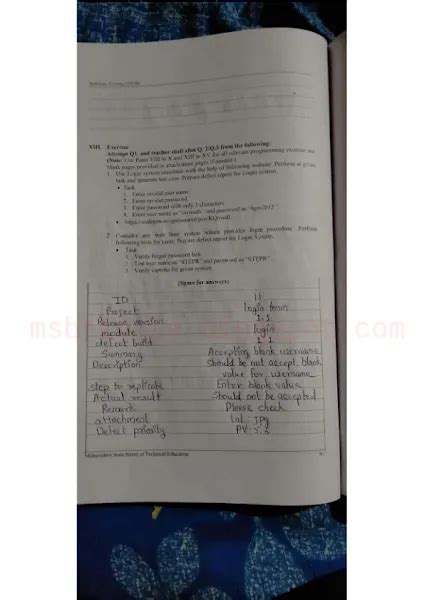 XIII. Exercise
Attempt Q1. and teacher shall allot Q. 2/Q.3 from the following:
(Note: Use Point VIII to X and XIII to XV for all relevant programming exercise use
blank pages provided or attach more pages if needed.)
1. Use Login system available with the help of following website. Perform as given
task and generate test case. Prepare defect report for Login system.
• Task
1. Enter invalid user name
2. Enter invalid password
3. Enter password with only 3 characters
4. Enter user name as and password as
2. Consider any web base system which provides login procedure. Perform
following tasks for same. Prepare defect report for Login System.
• Task
1. Verify forgot password link
2. Test user name as "STEPR" and password as "STEPR"
3. Verify captcha for given system
(Space for answers)
ID 11
Project login form
Release version 1.1
module login
defect build 1.1
Summary Accepting blank username
Description Should be not accept blank
value for username
step to replicate Enter blank value
Actual result Should not be accepted
Remark Please check
attachment
Defect priority
Maharashtra State Board of Technical Education